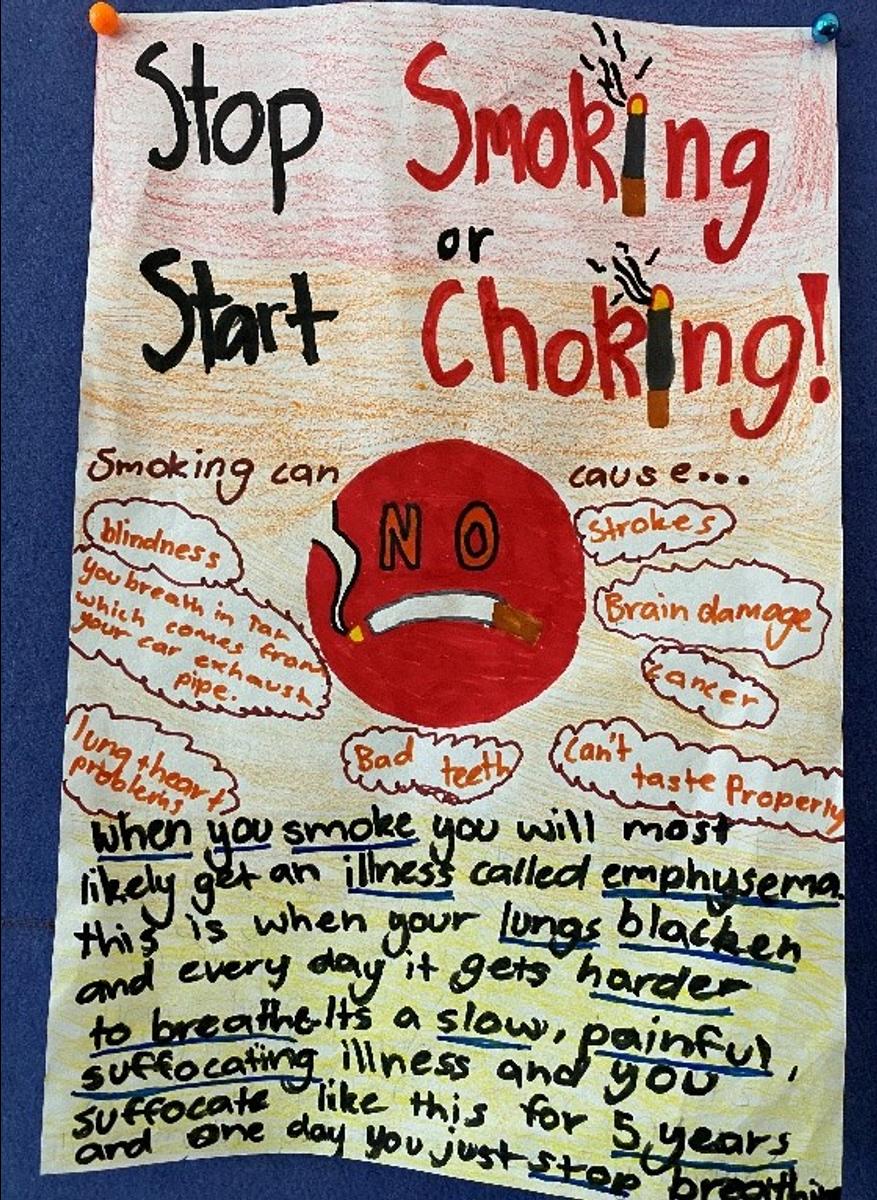 Stop Smoking
or
Start Choking!
Smoking can cause...
blindness
Strokes
you breath in tar
which comes from
your car exhaust
pipe.
NO
Brain damage
cancer
lung + heart
problems
Bad teeth
Can't
taste Properly
when you smoke you will most
likely get an illness called emphysema.
this is when your lungs blacken
and every day it gets harder
to breathe. Its a slow, painful,
suffocating illness and you
suffocate like this for 5 years
and one day you just stop